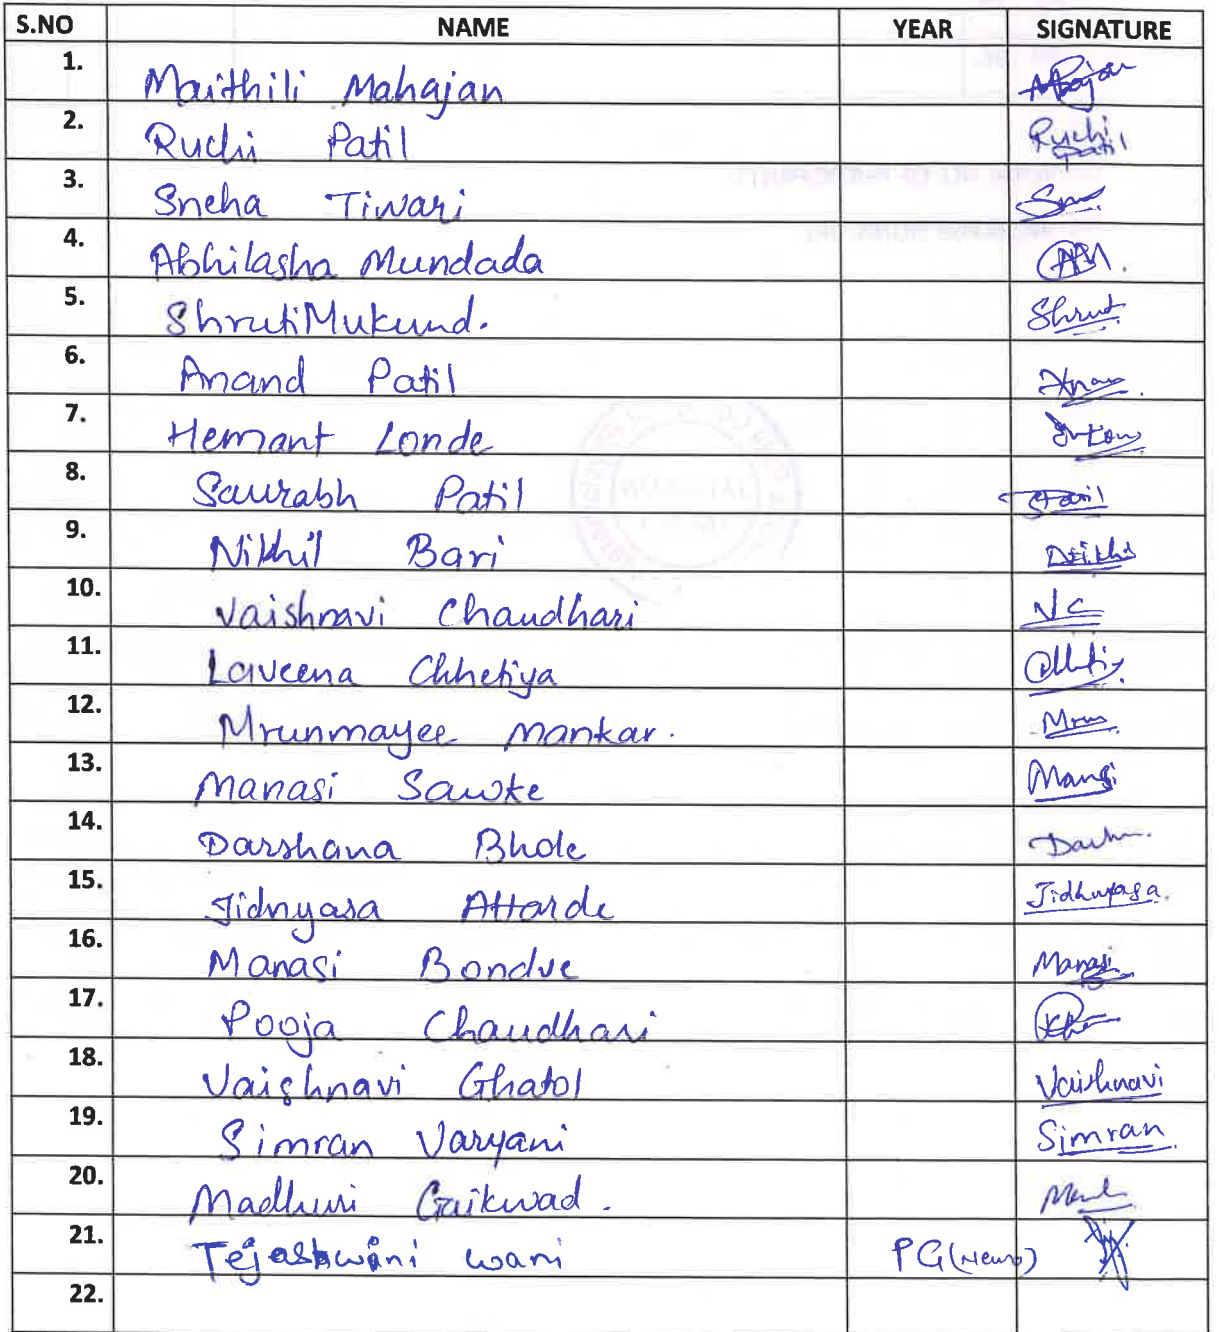 S.NO NAME YEAR SIGNATURE
1. Maithili Mahajan
2. Ruchi Patil Ruchi Patil
3. Sneha Tiwari
4. Abhilasha Mundada AM.
5. Shruti Mukund. Shrut
6. Anand Patil
7. Hemant Londe
8. Saurabh Patil
9. Nikhil Bari
10. Vaishnavi Chaudhari VC
11. Laveena Chhetiya
12. Mrunmayee Mankar.
13. Manasi Sawke
14. Darshana Bhole
15. Jidnyasa Attarde Jidnyasa.
16. Manasi Bondve Manasi
17. Pooja Chaudhari
18. Vaishnavi Ghatol Vaishnavi
19. Simran Varyani Simran
20. Madhuri Gaikwad.
21. Tejashwini wani PG (Neuro)
22.